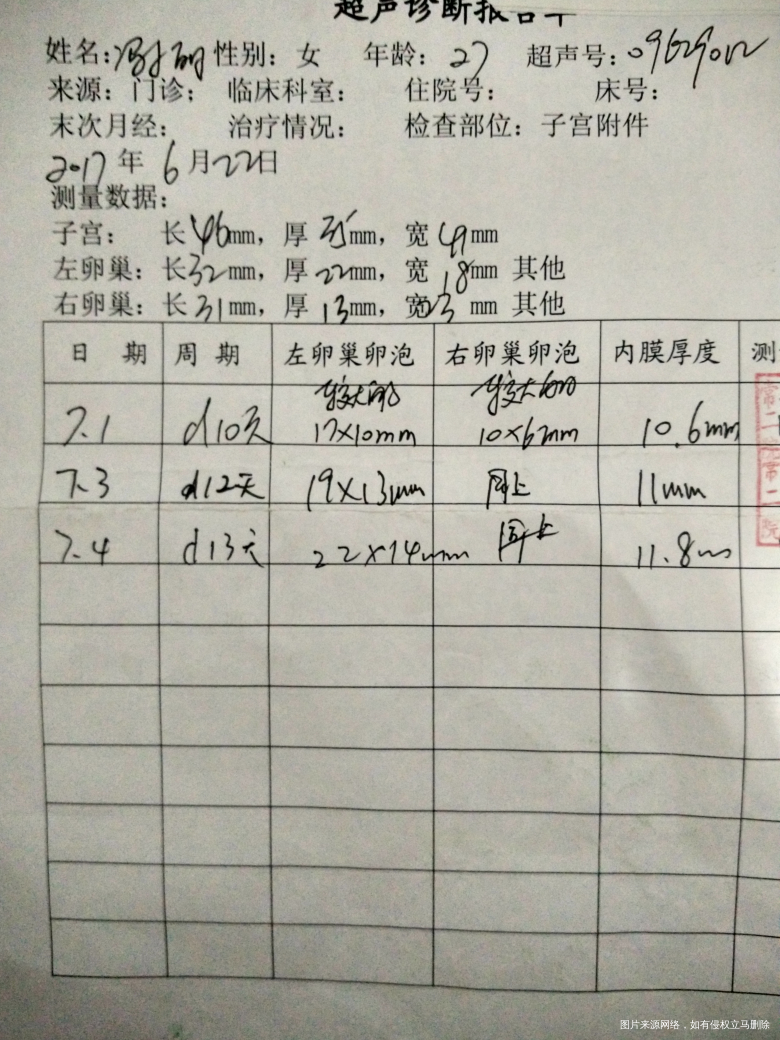 超声诊断报告单
姓名: 性别: 女 年龄: 27 超声号: 09629012
来源: 门诊; 临床科室: 住院号: 床号:
末次月经: 治疗情况: 检查部位: 子宫附件
2017年 6月22日
测量数据:
子宫: 长46mm, 厚35mm, 宽49mm
左卵巢: 长32mm, 厚22mm, 宽18mm 其他
右卵巢: 长31mm, 厚13mm, 宽23mm 其他
日期 周期 左卵巢卵泡 右卵巢卵泡 内膜厚度 测
较大的 较大的
7.1 d10天 17x10mm 10x6mm 10.6mm
7.3 d12天 19x13mm 同上 11mm
7.4 d13天 22x14mm 同上 11.8mm
图片来源网络，如有侵权立马删除